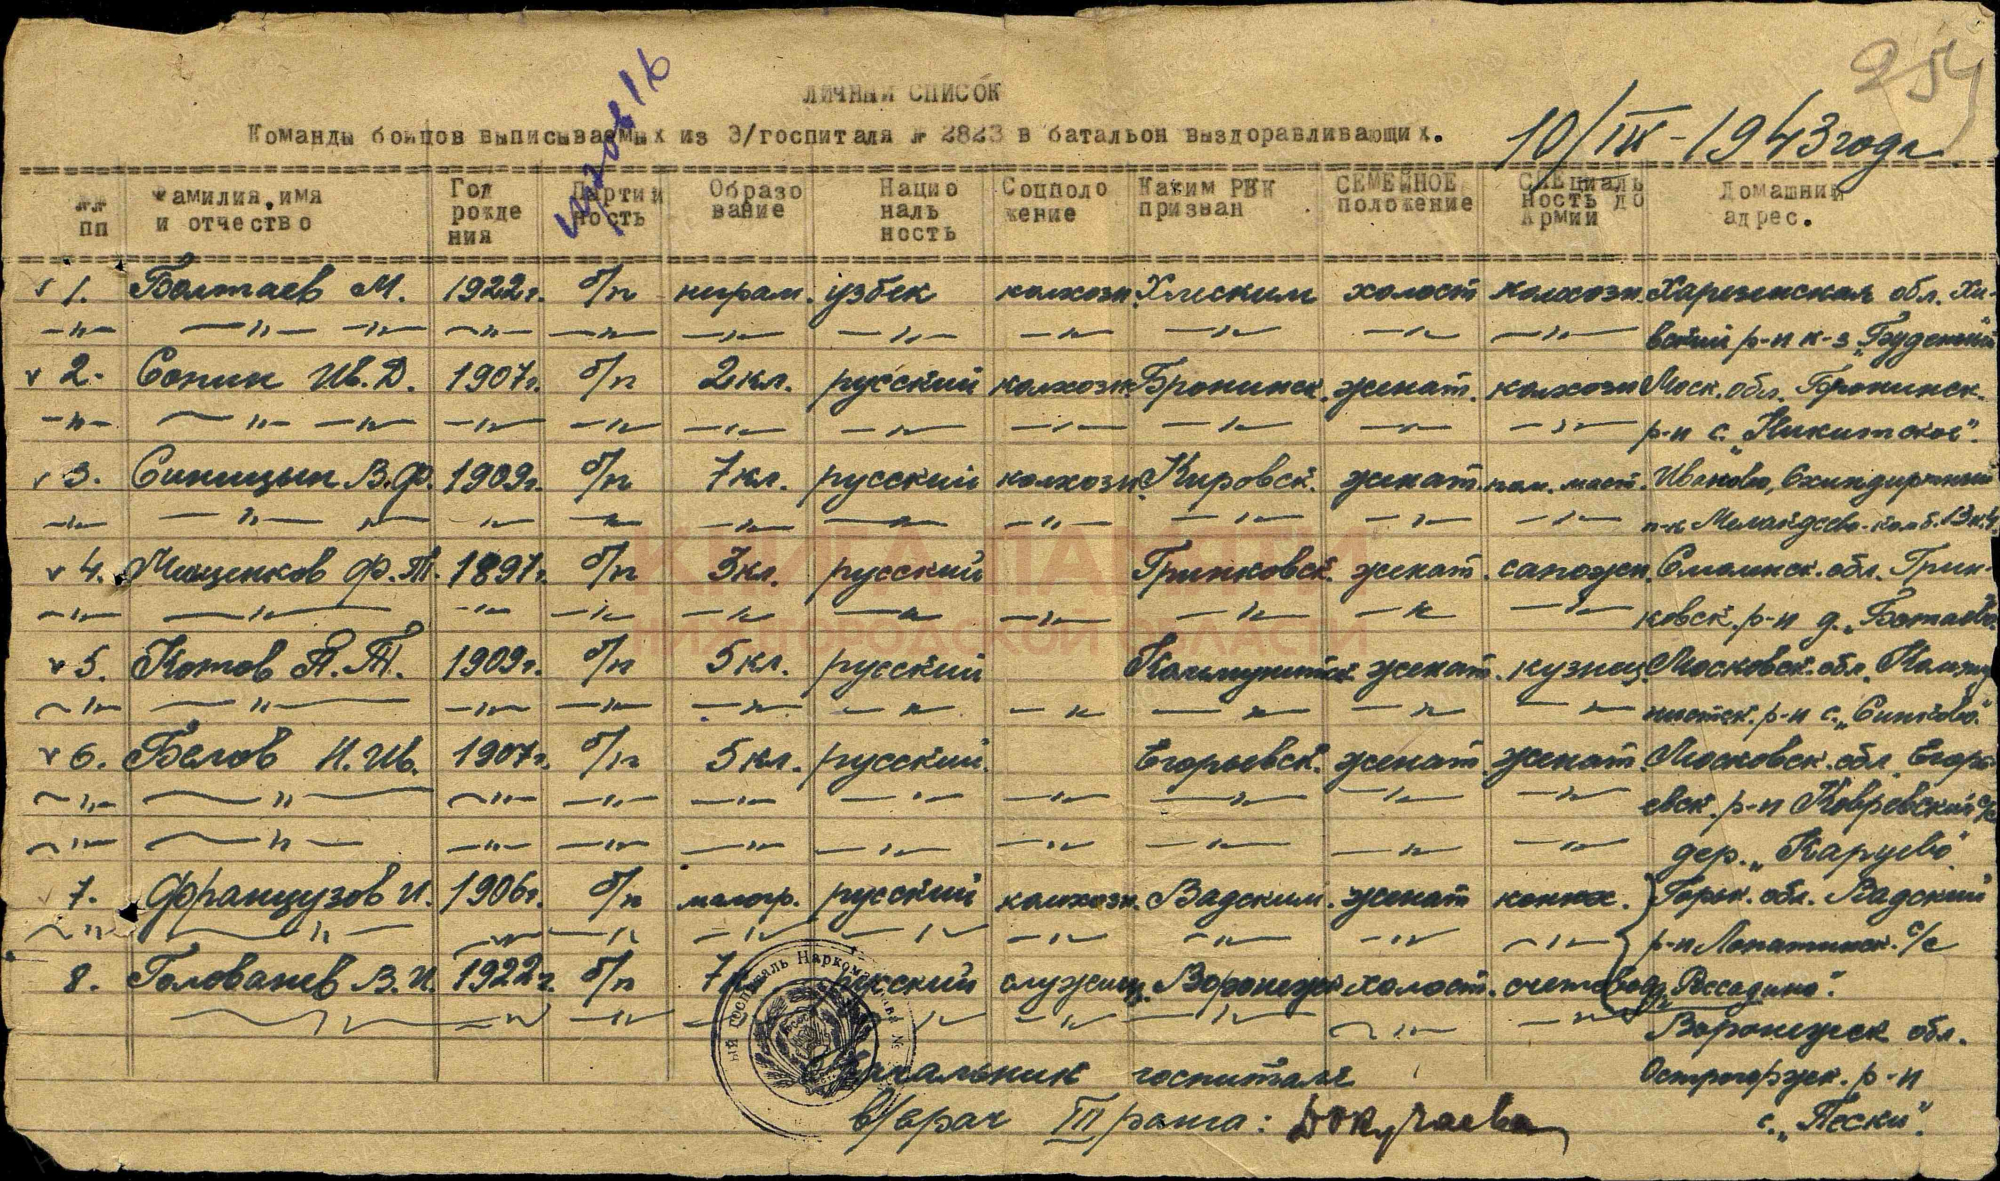 254
ЛИЧНЫЙ СПИСОК
Команды бойцов выписываемых из Э/госпиталя № 2823 в батальон выздоравливающих.
10/IX-1943 года
№№ пп Фамилия, имя и отчество Год рождения Партийность Образование Национальность Соцположение Каким РВК призван СЕМЕЙНОЕ положение Специальность до Армии Домашний адрес.
1. Болтаев М. 1922г. б/п неграм. узбек колхозн. холост колхозн. обл. Хи-
—"— —"— —"— —"— —"— —"— —"— —"— —"— —"— —"— —"— вский р-н к-з
2. Сонин Ив. Д. 1907г. б/п 2 кл. русский колхозн. Бронинск. женат. колхозн Моск. обл. Бронинск.
—"— —"— —"— —"— —"— —"— —"— —"— —"— —"— —"— —"— р-н с. "Никитское".
3. Синицын В.Ф. 1909г. б/п 7 кл. русский колхозн. Кировск. женат. пом. маст. Иваново,
—"— —"— —"— —"— —"— —"— —"— —"— —"— —"— —"— —"—
4. Мищенков Ф.Т. 1897г. б/п 3 кл. русский Гринковск. женат. сапожн. обл. Грин-
—"— —"— —"— —"— —"— —"— —"— —"— —"— —"— ковск. р-н д.
5. Котов П.Т. 1909г. б/п 5 кл. русский женат. кузнец. Московск. обл.
—"— —"— —"— —"— —"— —"— —"— —"— —"— —"— р-н с. "Синьково".
6. Белов И. Ив. 1907г. б/п 5 кл. русский. Егорьевск. женат. женат. Московск. обл. Егорь-
—"— —"— —"— —"— —"— —"— —"— —"— —"— —"— евск. р-н Ковревский с/с
—"— —"— —"— —"— —"— —"— —"— —"— —"— —"— дер. "Карцево"
7. Французов И. 1906г. б/п малогр. русский колхозн. Вадским. женат конюх. Горьк. обл. Вадский
—"— —"— —"— —"— —"— —"— —"— —"— —"— —"— р-н Лопатинск. с/с
8. Голованев В.И. 1922г. б/п русский служащ. Воронежск холост. счетовод д. "Рассадино".
—"— —"— —"— —"— —"— —"— —"— —"— Воронежск обл.
Начальник госпиталя Острогоржск. р-н
в/врач III ранга: Докучаева с. "Пески".
КНИГА ПАМЯТИ
НИЖЕГОРОДСКОЙ ОБЛАСТИ